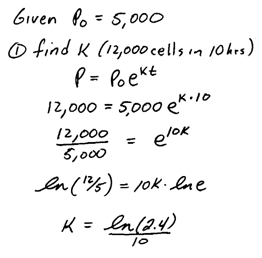 Given P₀ = 5,000
① find K (12,000 cells in 10 hrs)
P = P₀e^{Kt}
12,000 = 5,000 e^{K·10}
12,000/5,000 = e^{10K}
ln(12/5) = 10K · ln e
K = ln(2.4)/10